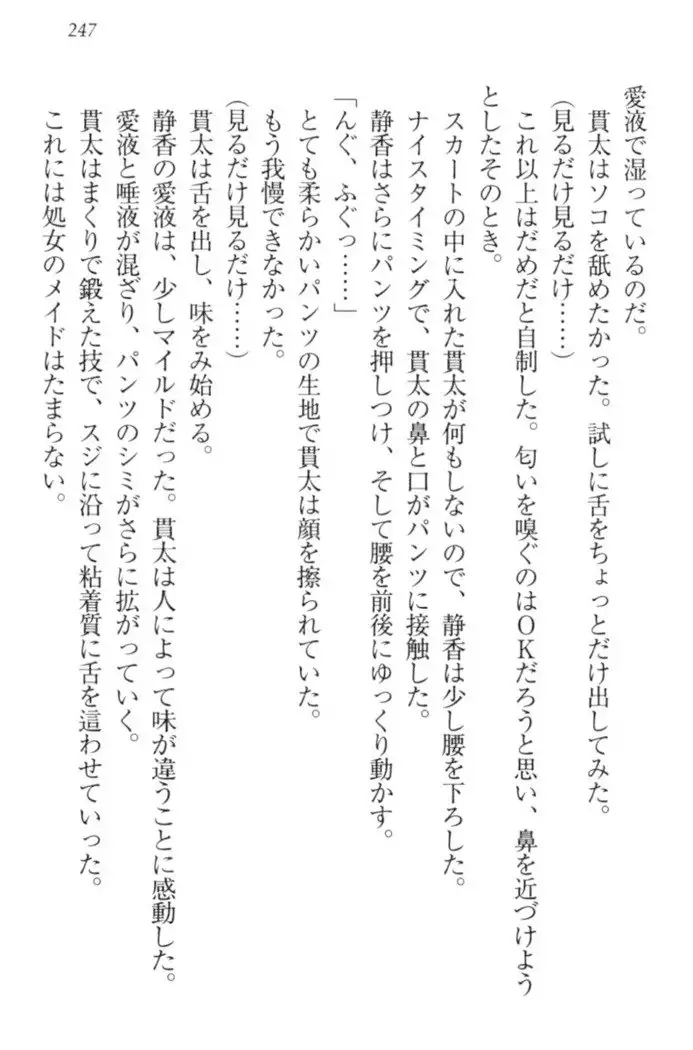 247
愛液で湿っているのだ。
貫太はソコを舐めたかった。試しに舌をちょっとだけ出してみた。
(見るだけ見るだけ……)
これ以上はだめだと自制した。匂いを嗅ぐのはOKだろうと思い、鼻を近づけよう
としたそのとき。
スカートの中に入れた貫太が何もしないので、静香は少し腰を下ろした。
ナイスタイミングで、貫太の鼻と口がパンツに接触した。
静香はさらにパンツを押しつけ、そして腰を前後にゆっくり動かす。
「んぐ、ふぐっ……」
とても柔らかいパンツの生地で貫太は顔を擦られていた。
もう我慢できなかった。
(見るだけ見るだけ……)
貫太は舌を出し、味をみ始める。
静香の愛液は、少しマイルドだった。貫太は人によって味が違うことに感動した。
愛液と唾液が混ざり、パンツのシミがさらに拡がっていく。
貫太はまくりで鍛えた技で、スジに沿って粘着質に舌を這わせていった。
これには処女のメイドはたまらない。